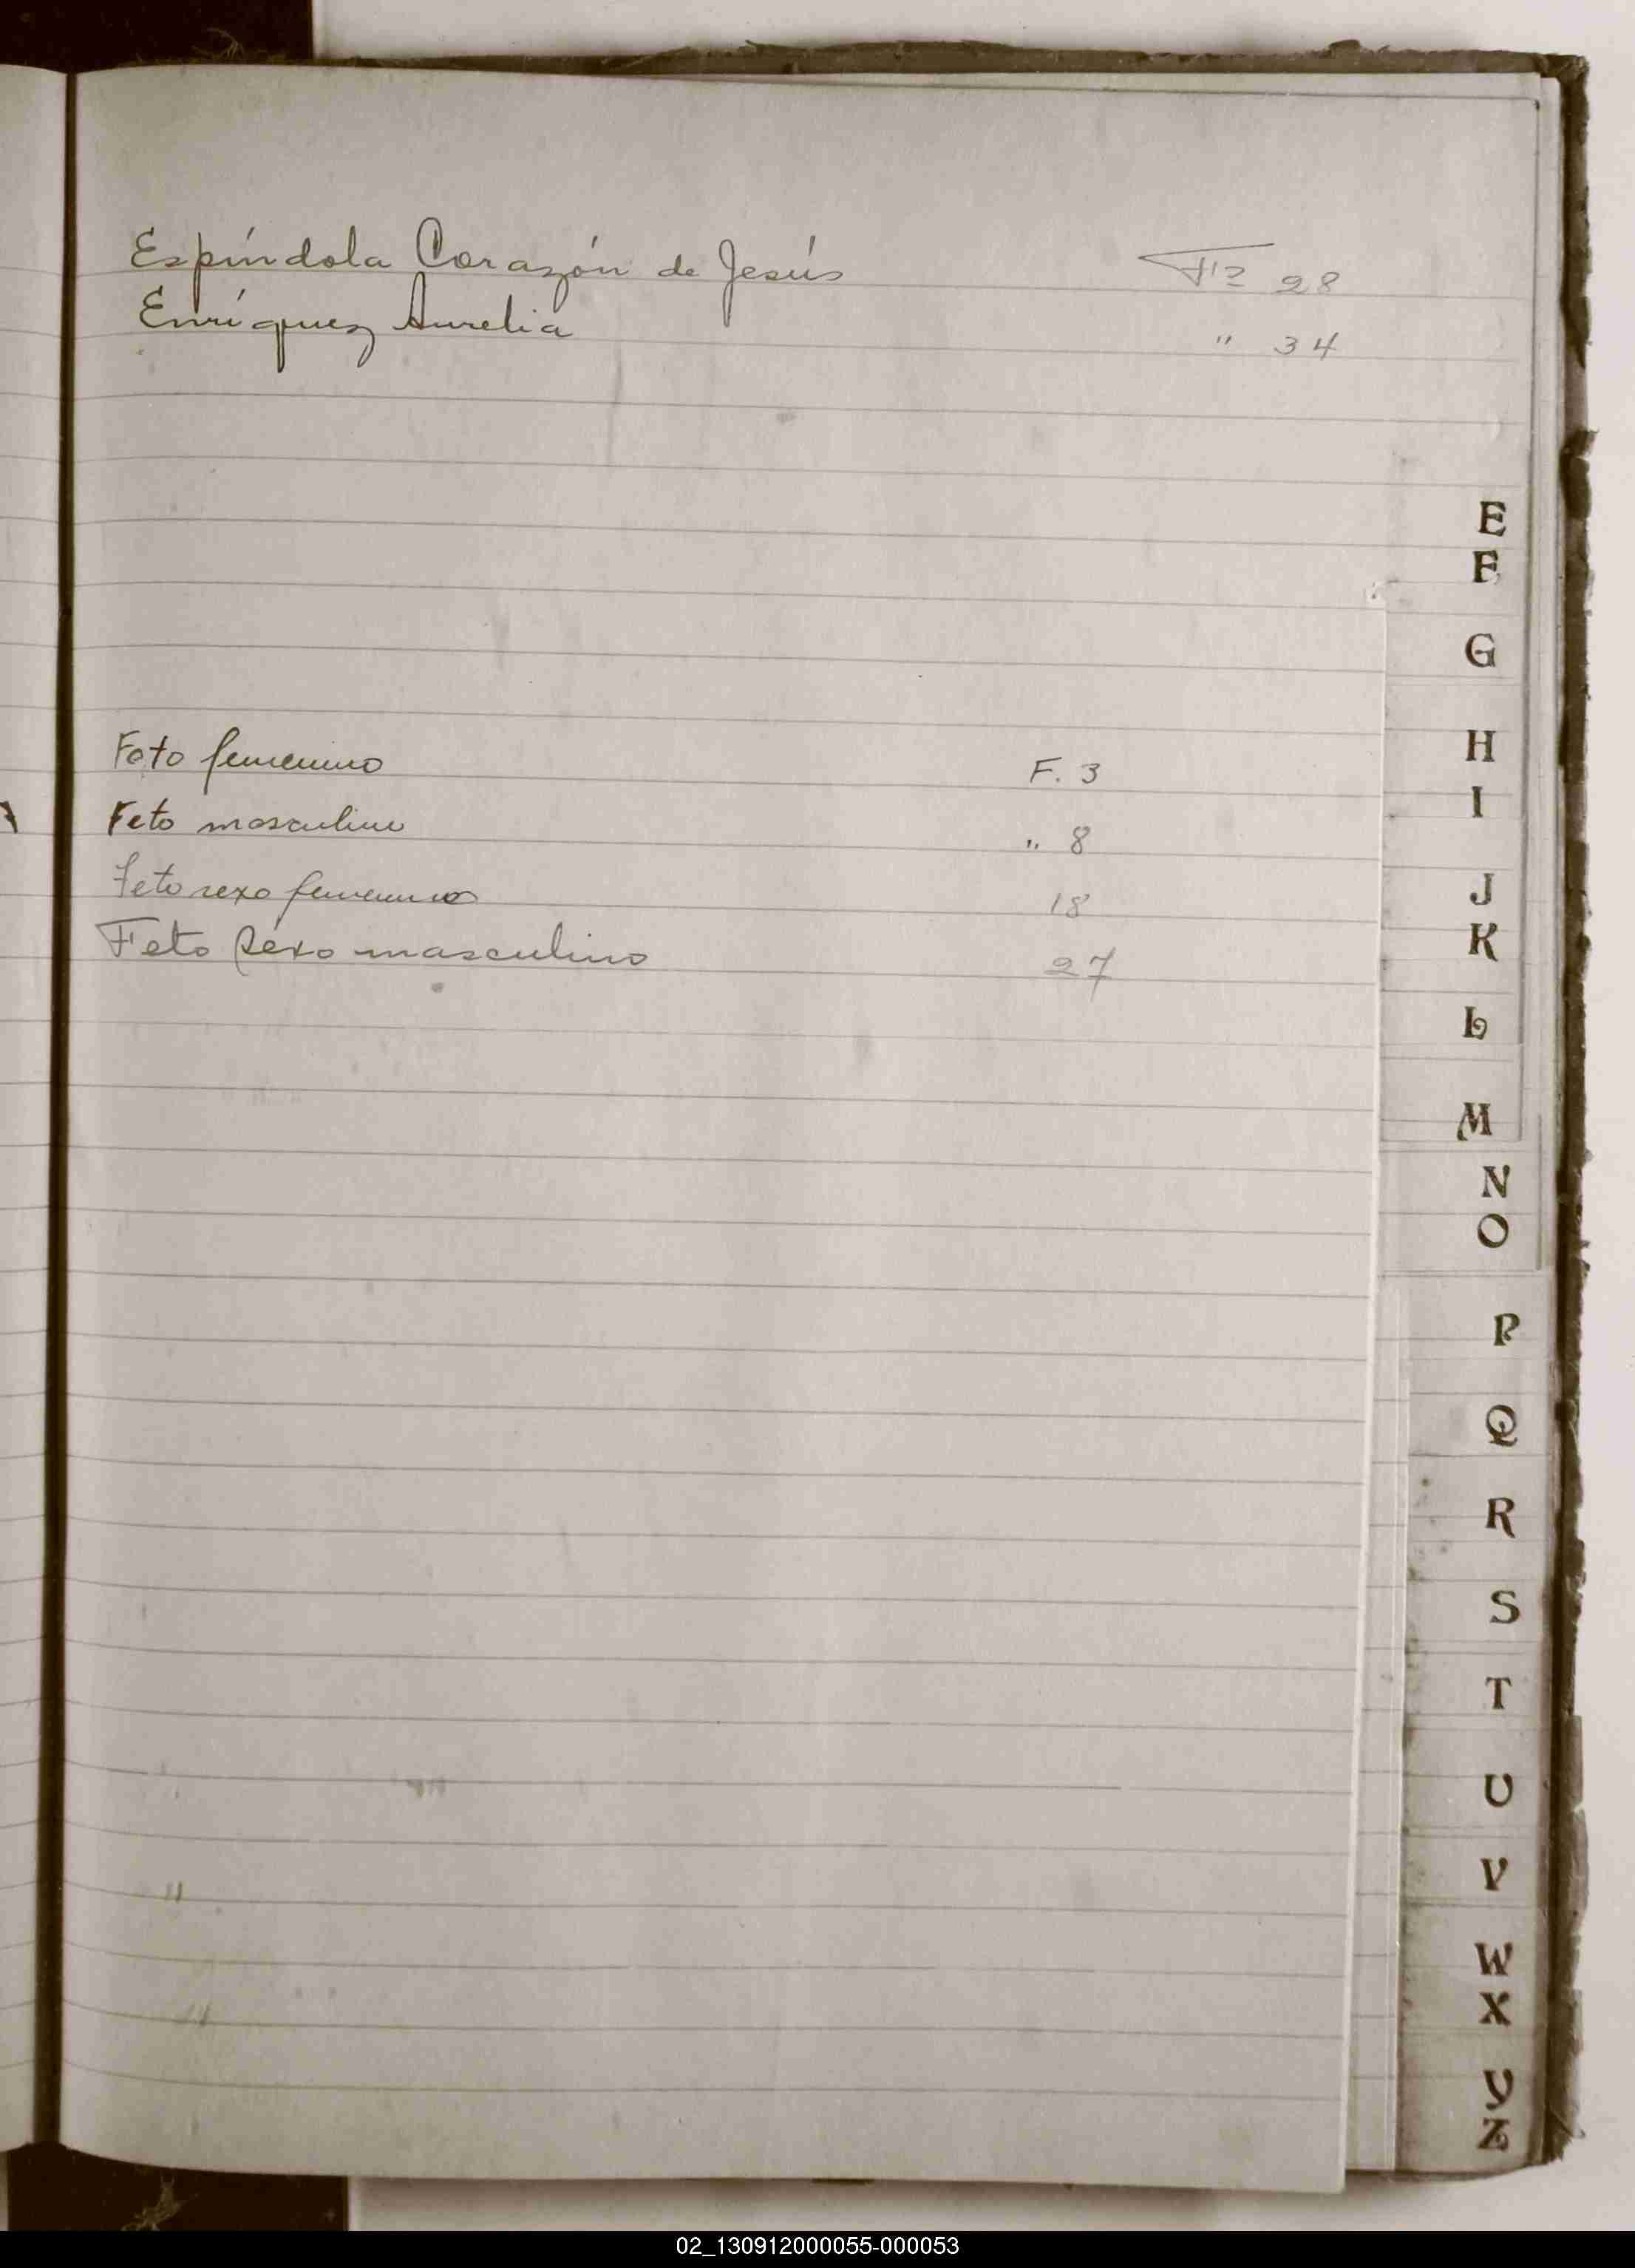 Espíndola Corazón de Jesús Fª 28
Enríquez Aurelia " 34
E
F
G
H
I
Feto femenino F. 3
Feto masculino " 8
Feto sexo femenino 18
Feto Séxo masculino 27
J
K
L
M
N
O
P
Q
R
S
T
U
V
W
X
Y
Z
02_130912000055-000053